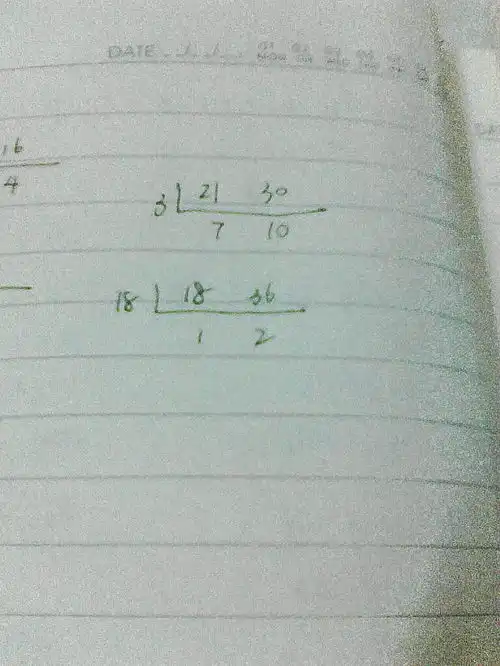 DATE
16
4
3 21 30
7 10
18 18 36
1 2